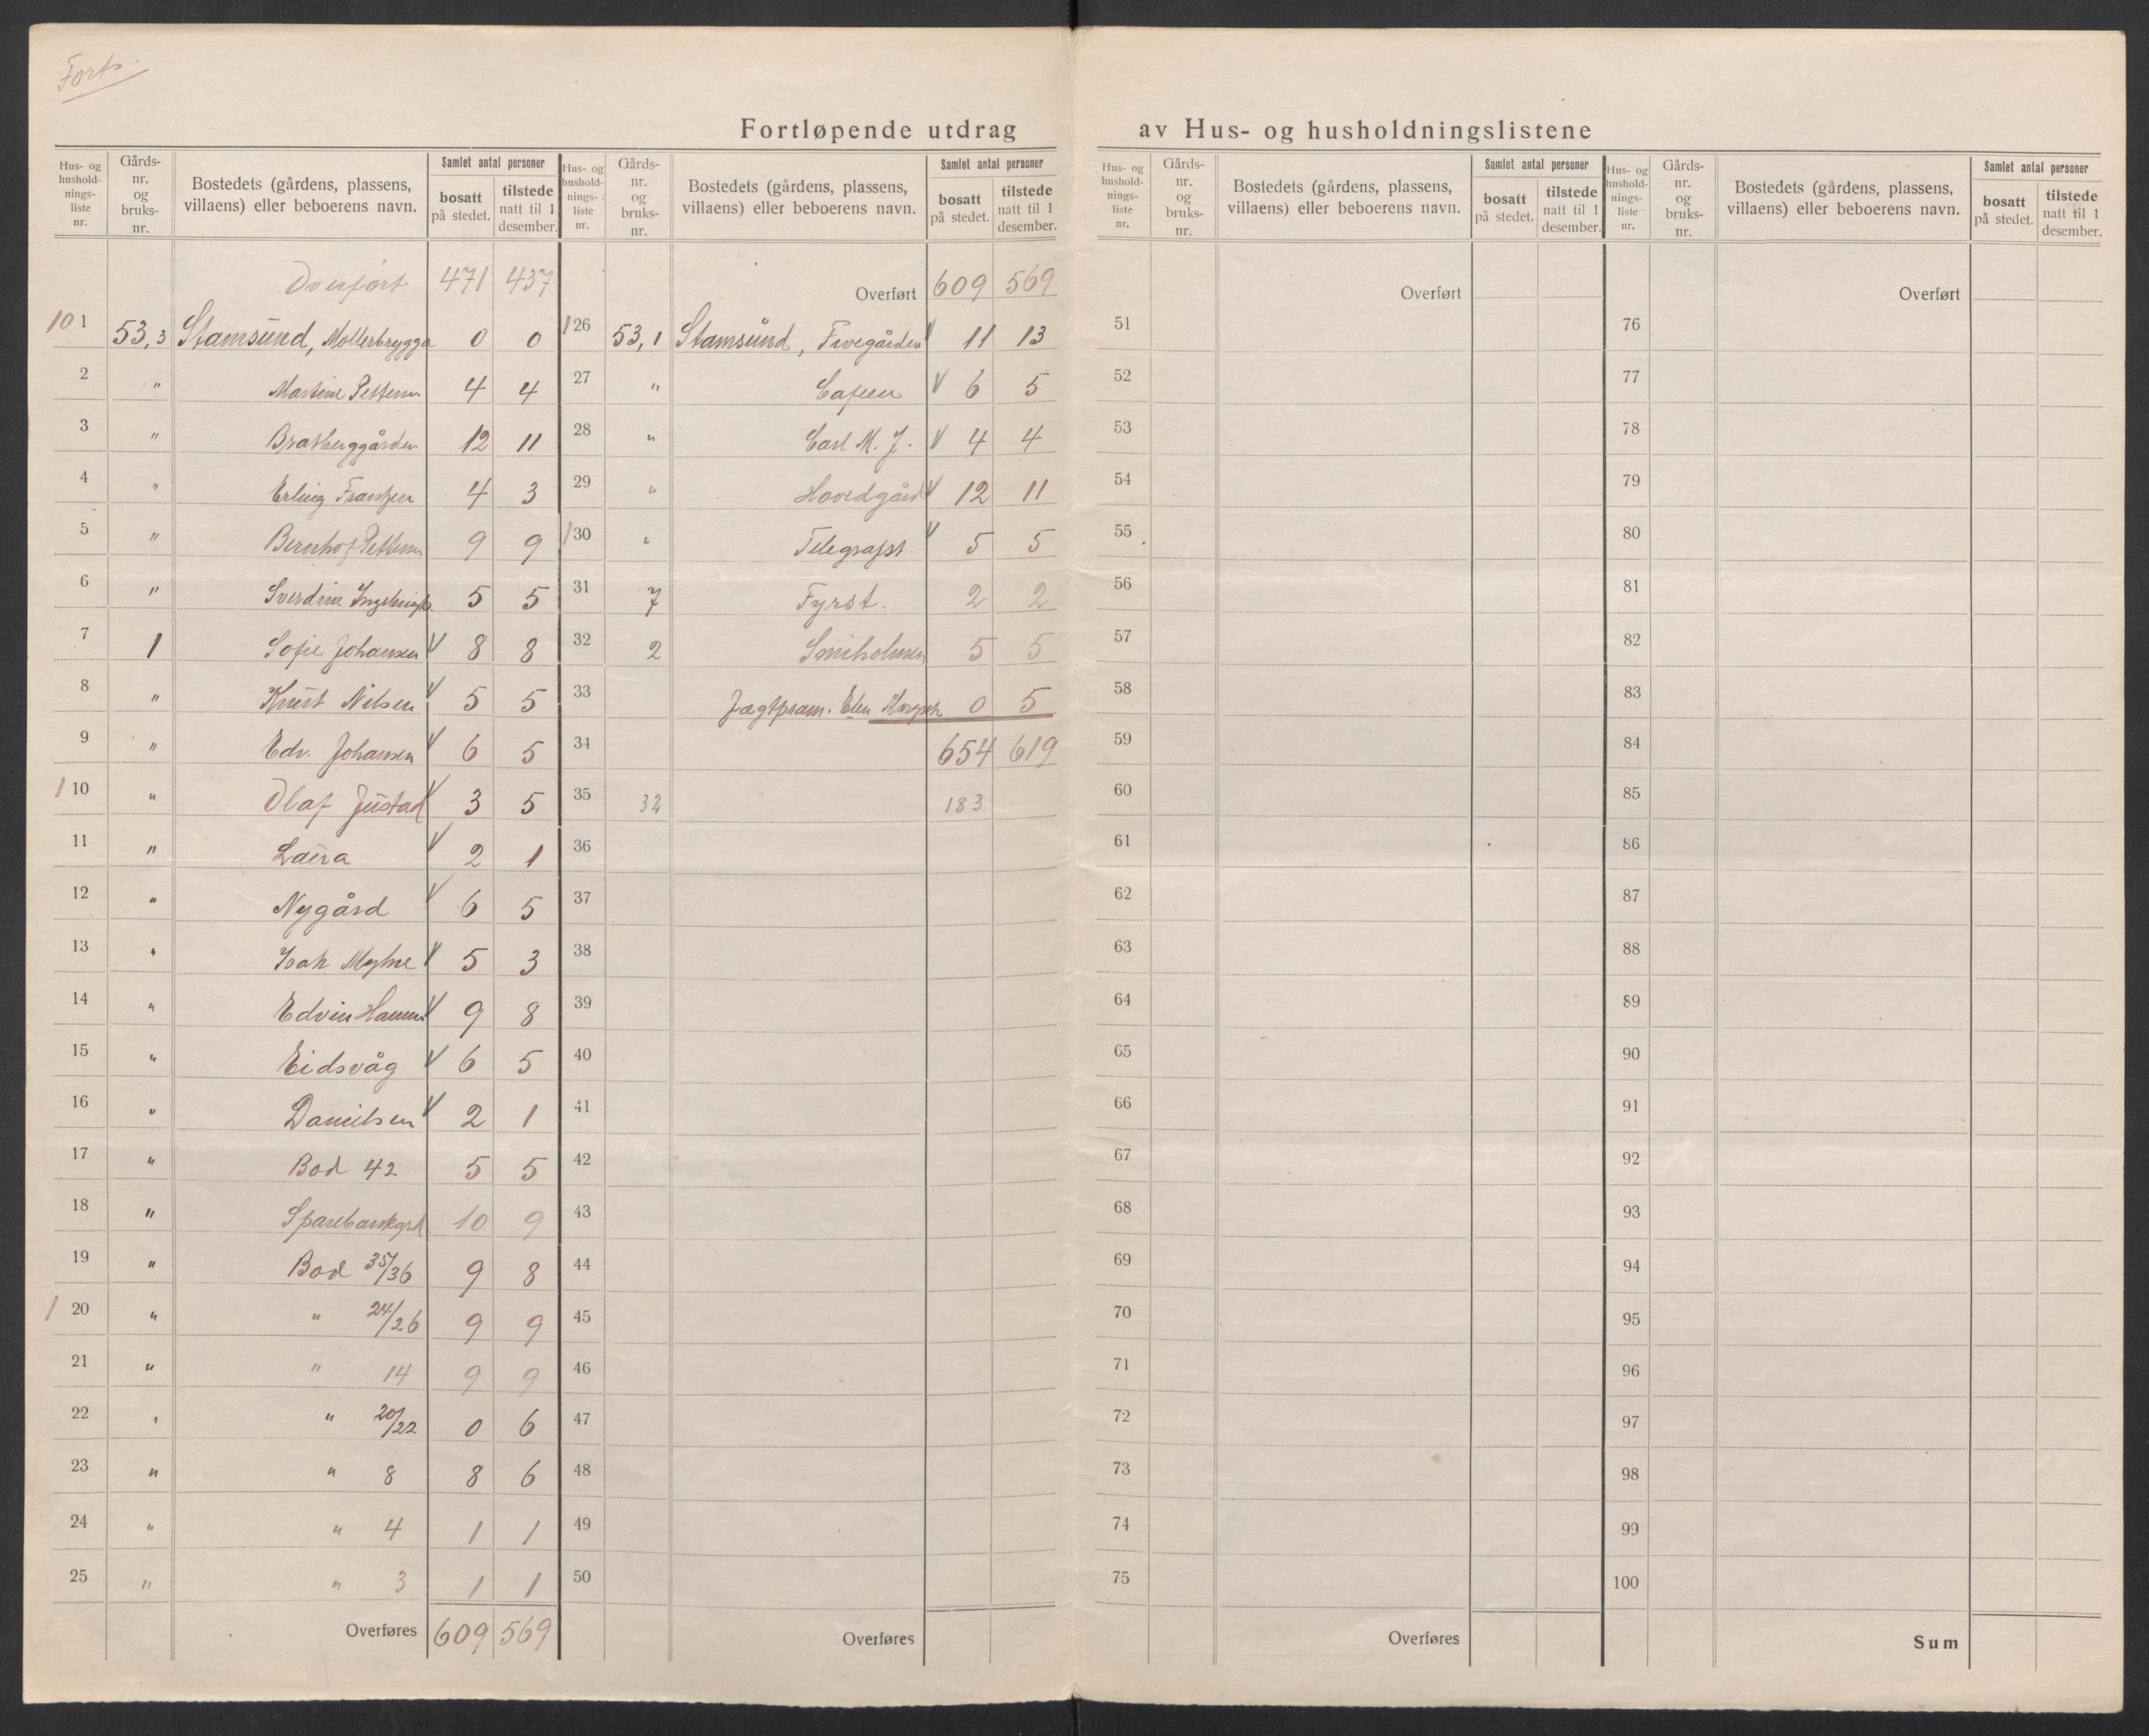 Forts.
Fortløpende utdrag av Hus- og husholdningslistene
Hus- og husholdningsliste nr. Gårds-nr. og bruks-nr. Bostedets (gårdens, plassens, villaens) eller beboerens navn. Samlet antal personer bosatt på stedet. tilstede natt til 1 desember.
Overført 471 437
101 53,3 Stamsund, Mollerbrygga 0 0
2 " Martine Pettersen 4 4
3 " Bratberggården 12 11
4 " Erling Frantzen 4 3
5 " Bernhof Pettersen 9 9
6 " Sverdrine 5 5
7 1 Sofie Johansen V 8 8
8 " Knut Nilsen V 5 5
9 " Edv. Johansen V 6 5
110 " Olaf Justad V 3 5
11 " Laura V 2 1
12 " Nygård V 6 5
13 " Isak Myhre V 5 3
14 " Edvin Hansen V 9 8
15 " Eidsvåg V 6 5
16 " Danielsen V 2 1
17 " Bod 42 5 5
18 " Sparebankgrd 10 9
19 " Bod 35/36 9 8
120 " " 24/26 9 9
21 " " 14 9 9
22 " " 20/22 0 6
23 " " 8 8 6
24 " " 4 1 1
25 " " 3 1 1
Overføres 609 569
Hus- og husholdnings-liste nr. Gårds-nr. og bruks-nr. Bostedets (gårdens, plassens, villaens) eller beboerens navn. Samlet antal personer bosatt på stedet. tilstede natt til 1 desember.
Overført 609 569
126 53,1 Stamsund, V 11 13
27 " Cafeen V 6 5
28 " Carl M. J. V 4 4
29 " Hovedgård V 12 11
130 " Telegrafst V 5 5
31 7 Fyrst. 2 2
32 2 5 5
33 Jagtpram. 0 5
34 654 619
35 32 183
36
37
38
39
40
41
42
43
44
45
46
47
48
49
50
Overføres
Hus- og husholdnings-liste nr. Gårds-nr. og bruks-nr. Bostedets (gårdens, plassens, villaens) eller beboerens navn. Samlet antal personer bosatt på stedet. tilstede natt til 1 desember.
Overført
51
52
53
54
55
56
57
58
59
60
61
62
63
64
65
66
67
68
69
70
71
72
73
74
75
Overføres
Hus- og husholdnings-liste nr. Gårds-nr. og bruks-nr. Bostedets (gårdens, plassens, villaens) eller beboerens navn. Samlet antal personer bosatt på stedet. tilstede natt til 1 desember.
Overført
76
77
78
79
80
81
82
83
84
85
86
87
88
89
90
91
92
93
94
95
96
97
98
99
100
Sum